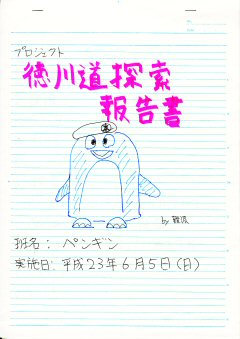 プロジェクト
徳川道探索
報告書
by
班名: ペンギン
実施日: 平成23年6月5日(日)